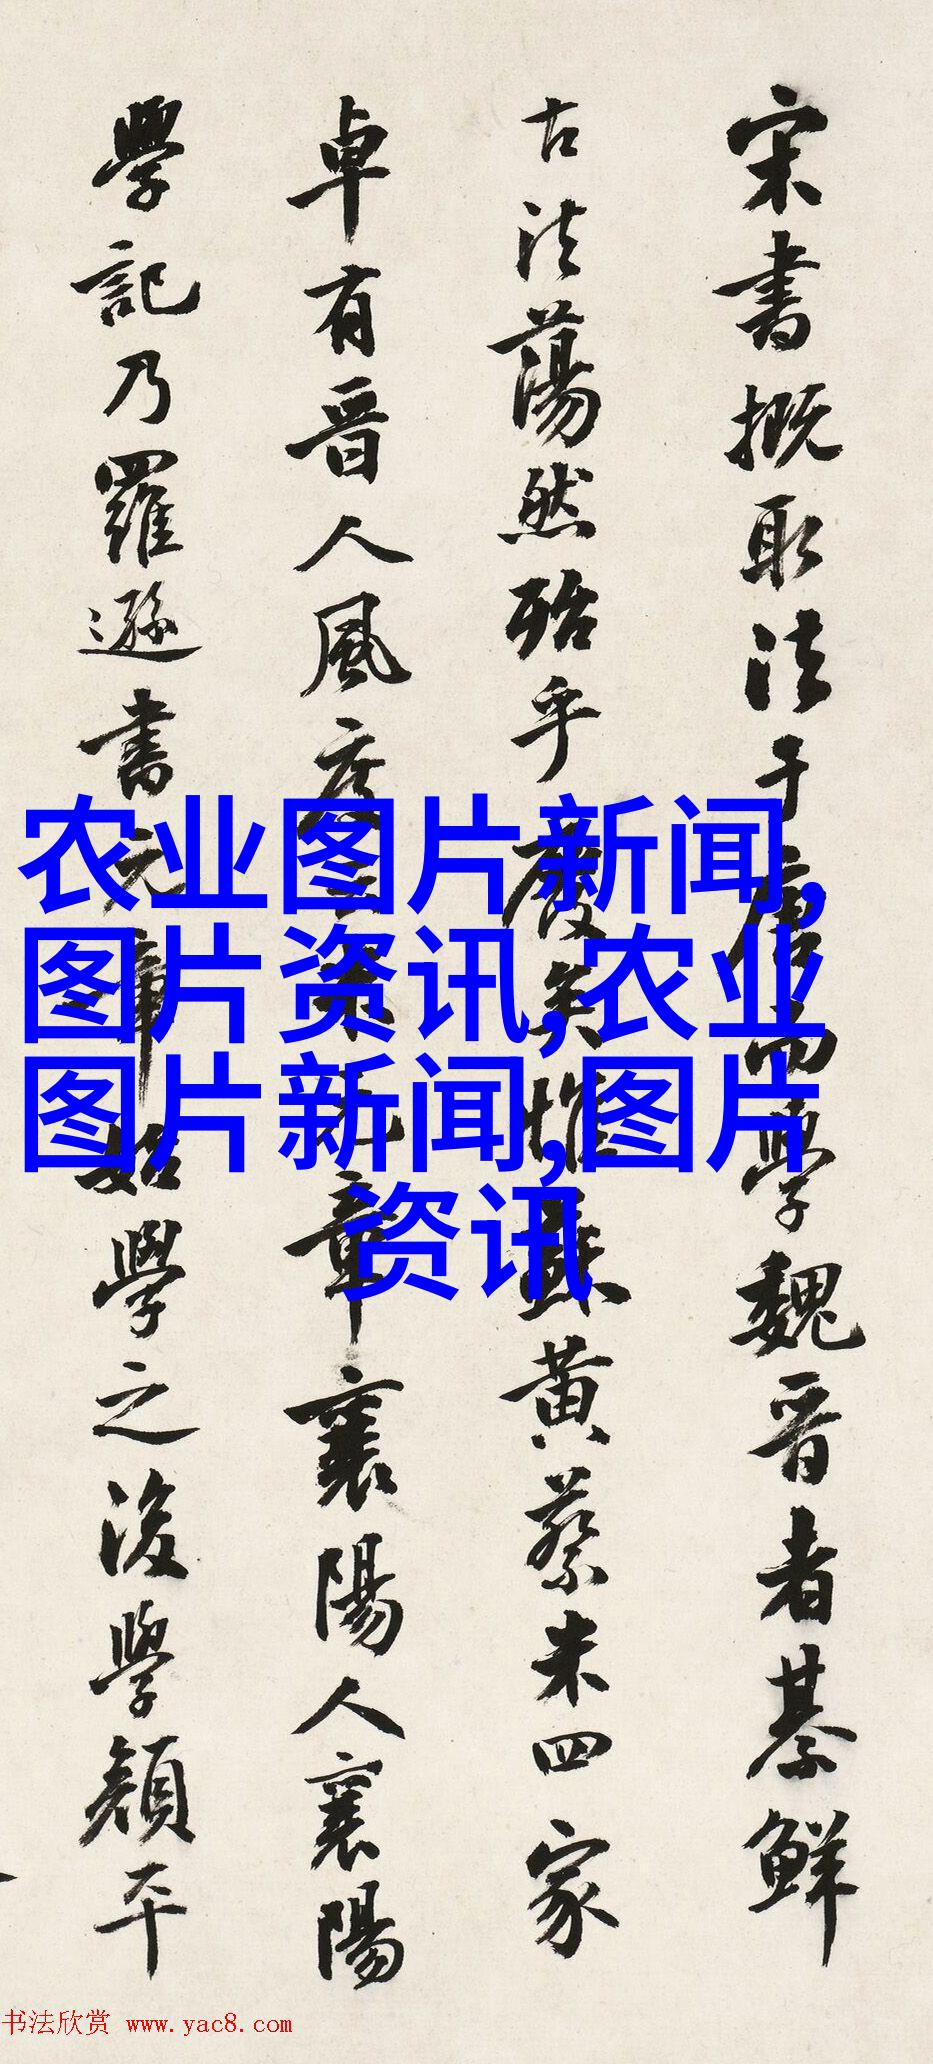 宋書概取法于唐而學魏晋者綦鮮
古法蕩然殆乎廢矣惟蘇黄蔡米四家
卓有晋人風度米元章襄陽人襄陽
學記乃羅遜書元章始學之後學顏平
农业图片新闻,
图片资讯,农业
图片新闻,图片
资讯
书法欣赏 www.yac8.com